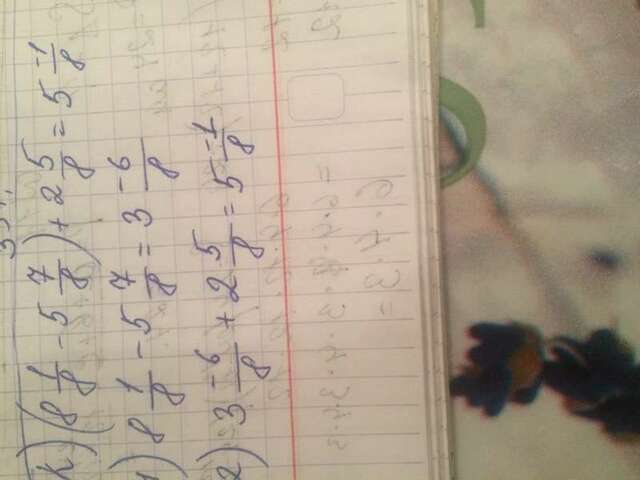 к) (8 1/8 - 5 7/8) + 2 5/8 = 5 -1/8
1) 8 1/8 - 5 7/8 = 3 -6/8
2) 3 -6/8 + 2 5/8 = 5 -1/8